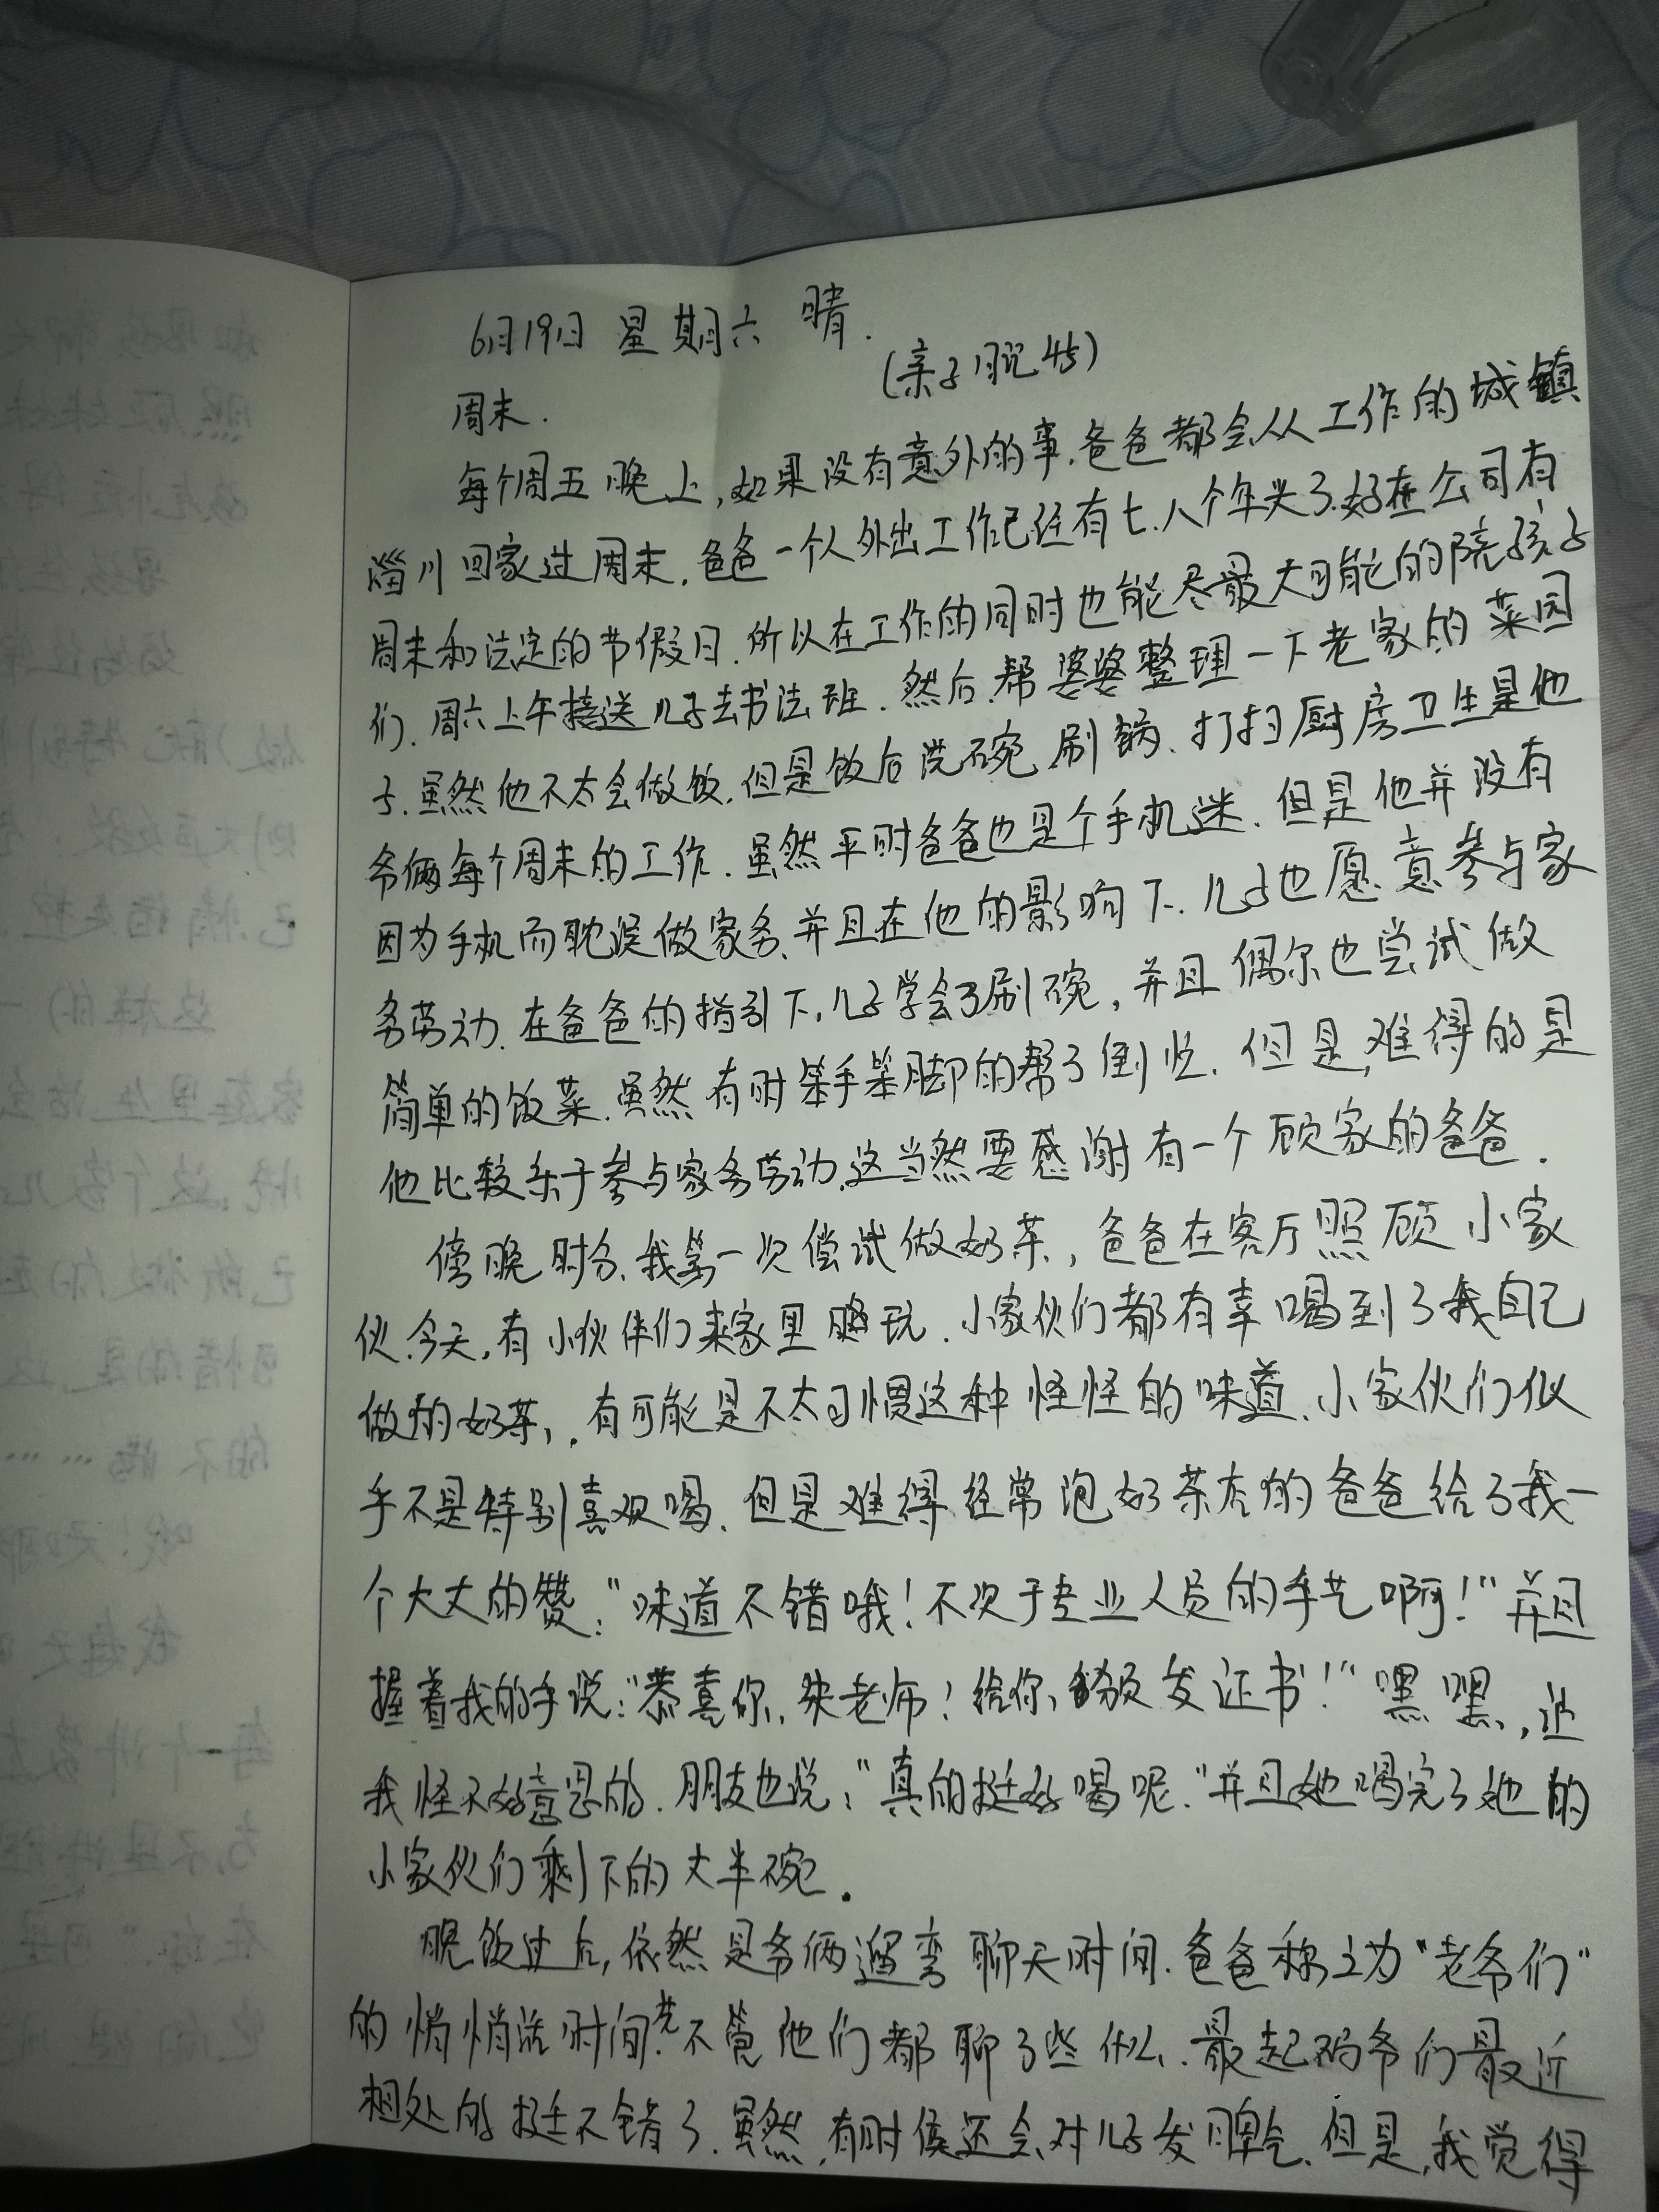 6月19日 星期六 晴.
(亲子日记45)
周末.
每个周五晚上,如果没有意外的事.爸爸都会从工作的城镇
淄川回家过周末.爸爸一个人外出工作已经有七.八个年头了.好在公司有
周末和法定的节假日.所以在工作的同时也能尽最大可能的陪孩子
们.周六上午接送儿子去书法班.然后.帮婆婆整理一下老家的菜园
子.虽然他不太会做饭.但是饭后洗碗、刷锅、打扫厨房卫生是他
爷俩每个周末的工作.虽然平时爸爸也是个手机迷.但是他并没有
因为手机而耽误做家务.并且在他的影响下.儿子也愿意参与家
务劳动.在爸爸的指引下,儿子学会了刷碗,并且偶尔也尝试做
简单的饭菜.虽然有时笨手笨脚的帮了倒忙.但是,难得的是
他比较乐于参与家务劳动.这当然要感谢有一个顾家的爸爸.
傍晚时分.我第一次偿试做奶茶,爸爸在客厅照顾小家
伙.今天,有小伙伴们来家里玩.小家伙们都有幸喝到了我自己
做的奶茶,.有可能是不太习惯这种怪怪的味道.小家伙们似
乎不是特别喜欢喝.但是难得经常泡奶茶店的爸爸给了我一
个大大的赞:"味道不错哦!不次于专业人员的手艺啊!"并且
握着我的手说:"恭喜你,宋老师!给你颁发证书!"嘿嘿,迫
我怪不好意思的.朋友也说:"真的挺好喝呢."并且她喝完了她的
小家伙们剩下的大半碗.
晚饭过后,依然是爷俩遛弯聊天时间.爸爸称之为"老爷们"
的悄悄话时间.不管他们都聊了些什么.最起码爷们最近
相处的挺不错了.虽然,有时候还会对儿子发脾气.但是,我觉得